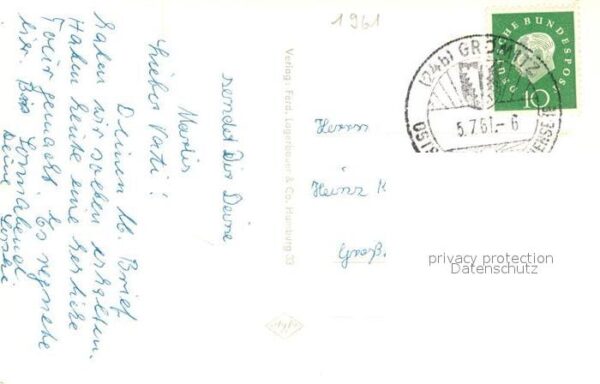 1961
Lieber Vati!
Deinen lb. Brief
haben wir soeben erhalten.
Haben heute eine herrliche
Tour gemacht. Es regnete
hier. Bis Sonnabend
Deine
sendet Dir Deine
Marlis
Verlag: Ferd. Lagerbauer & Co., Hamburg 33
Agfa
Herrn
Heinz K
Groß.
DEUTSCHE BUNDESPOST
10
(24b) GRÖMITZ
5.7.61.-6
privacy protection
Datenschutz